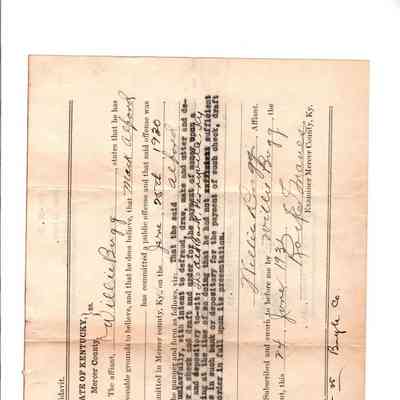 idavit.
ATE OF KENTUCKY, } ss.
Mercer County,
The affiant, Willie Bugg states that he has
sonable grounds to believe, and that he does believe, that Mark Alford
has committed a public offense and that said offense was
mmitted in Mercer county, Ky., on the June 25th 1930
manner and form as follows, viz: That the said Alford
unlawfully, with intent to defraud, draw, make and utter and de-
r a check and draft and order for the payment of money upon a
and depository to-wit: Bank Louisville Ky
ing at the time of so doing that he had not sufficient
s in such bank or depository for the payment of such check, draft
order in full upon its presentation.
Willie Bugg Affiant.
Subscribed and sworn to before me by Willie Bugg the
ant, this 24 June 1931
Examiner Mercer County, Ky.
Co